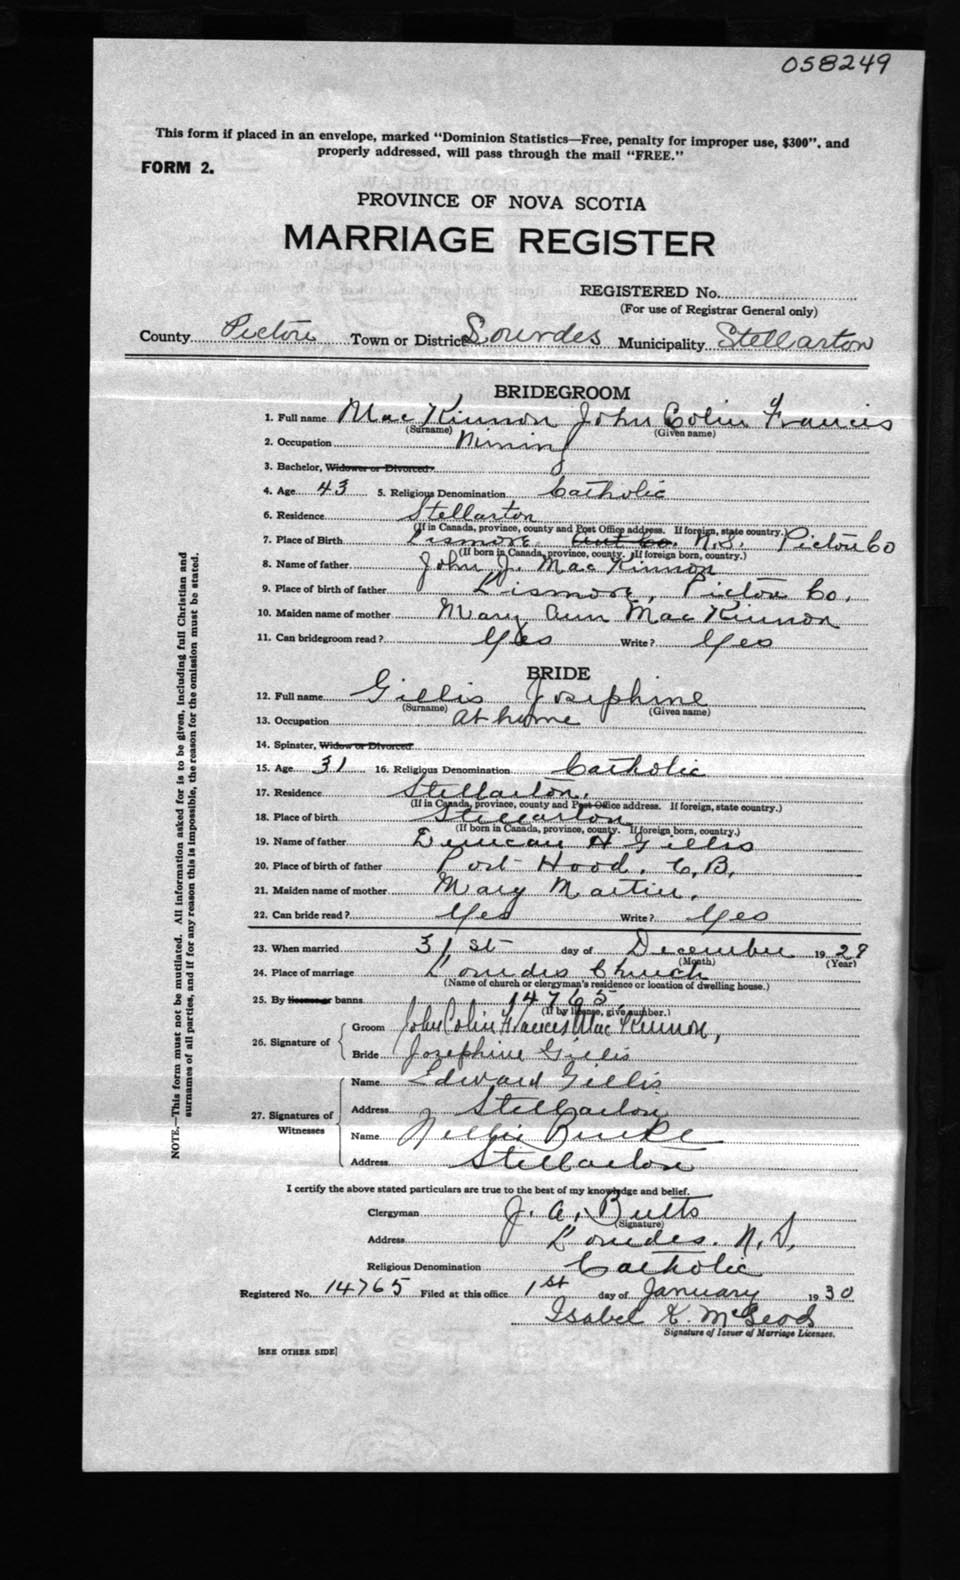 058249
This form if placed in an envelope, marked “Dominion Statistics—Free, penalty for improper use, $300”, and
properly addressed, will pass through the mail “FREE.”
FORM 2.
PROVINCE OF NOVA SCOTIA
MARRIAGE REGISTER
REGISTERED No.
(For use of Registrar General only)
County Pictou Town or District Lourdes Municipality Stellarton
BRIDEGROOM
1. Full name MacKinnon John Colin Francis
(Surname) (Given name)
2. Occupation Mining
3. Bachelor, Widower or Divorced.
4. Age 43 5. Religious Denomination Catholic
6. Residence Stellarton
(If in Canada, province, county and Post Office address. If foreign, state country.)
7. Place of Birth Lismore Ant Co. N.S. Pictou Co
(If born in Canada, province, county. If foreign born, country.)
8. Name of father John J. MacKinnon
9. Place of birth of father Lismore, Pictou Co.
10. Maiden name of mother Mary Ann MacKinnon
11. Can bridegroom read? Yes Write? Yes
BRIDE
12. Full name Gillis Josephine
(Surname) (Given name)
13. Occupation at home
14. Spinster, Widow or Divorced
15. Age 31 16. Religious Denomination Catholic
17. Residence Stellarton.
(If in Canada, province, county and Post Office address. If foreign, state country.)
18. Place of birth Stellarton
(If born in Canada, province, county. If foreign born, country.)
19. Name of father Duncan H Gillis
20. Place of birth of father Port Hood, C.B.
21. Maiden name of mother Mary Martin.
22. Can bride read? Yes Write? Yes
23. When married 31st day of December 1929
(Month) (Year)
24. Place of marriage Lourdes Church
(Name of church or clergyman's residence or location of dwelling house.)
25. By license or banns 14765
(If by license, give number.)
26. Signature of
Groom John Colin Frances MacKinnon,
Bride Josephine Gillis
27. Signatures of Witnesses
Name Edward Gillis
Address Stellarton
Name Nellie Burke
Address Stellarton
I certify the above stated particulars are true to the best of my knowledge and belief.
Clergyman J. A. Butts
(Signature)
Address Lourdes. N.S.
Religious Denomination Catholic
Registered No. 14765 Filed at this office 1st day of January 1930
Isabel K. McLeod
Signature of Issuer of Marriage Licenses.
[SEE OTHER SIDE]
NOTE.—This form must not be mutilated. All information asked for is to be given, including full Christian and
surnames of all parties, and if for any reason this is impossible, the reason for the omission must be stated.